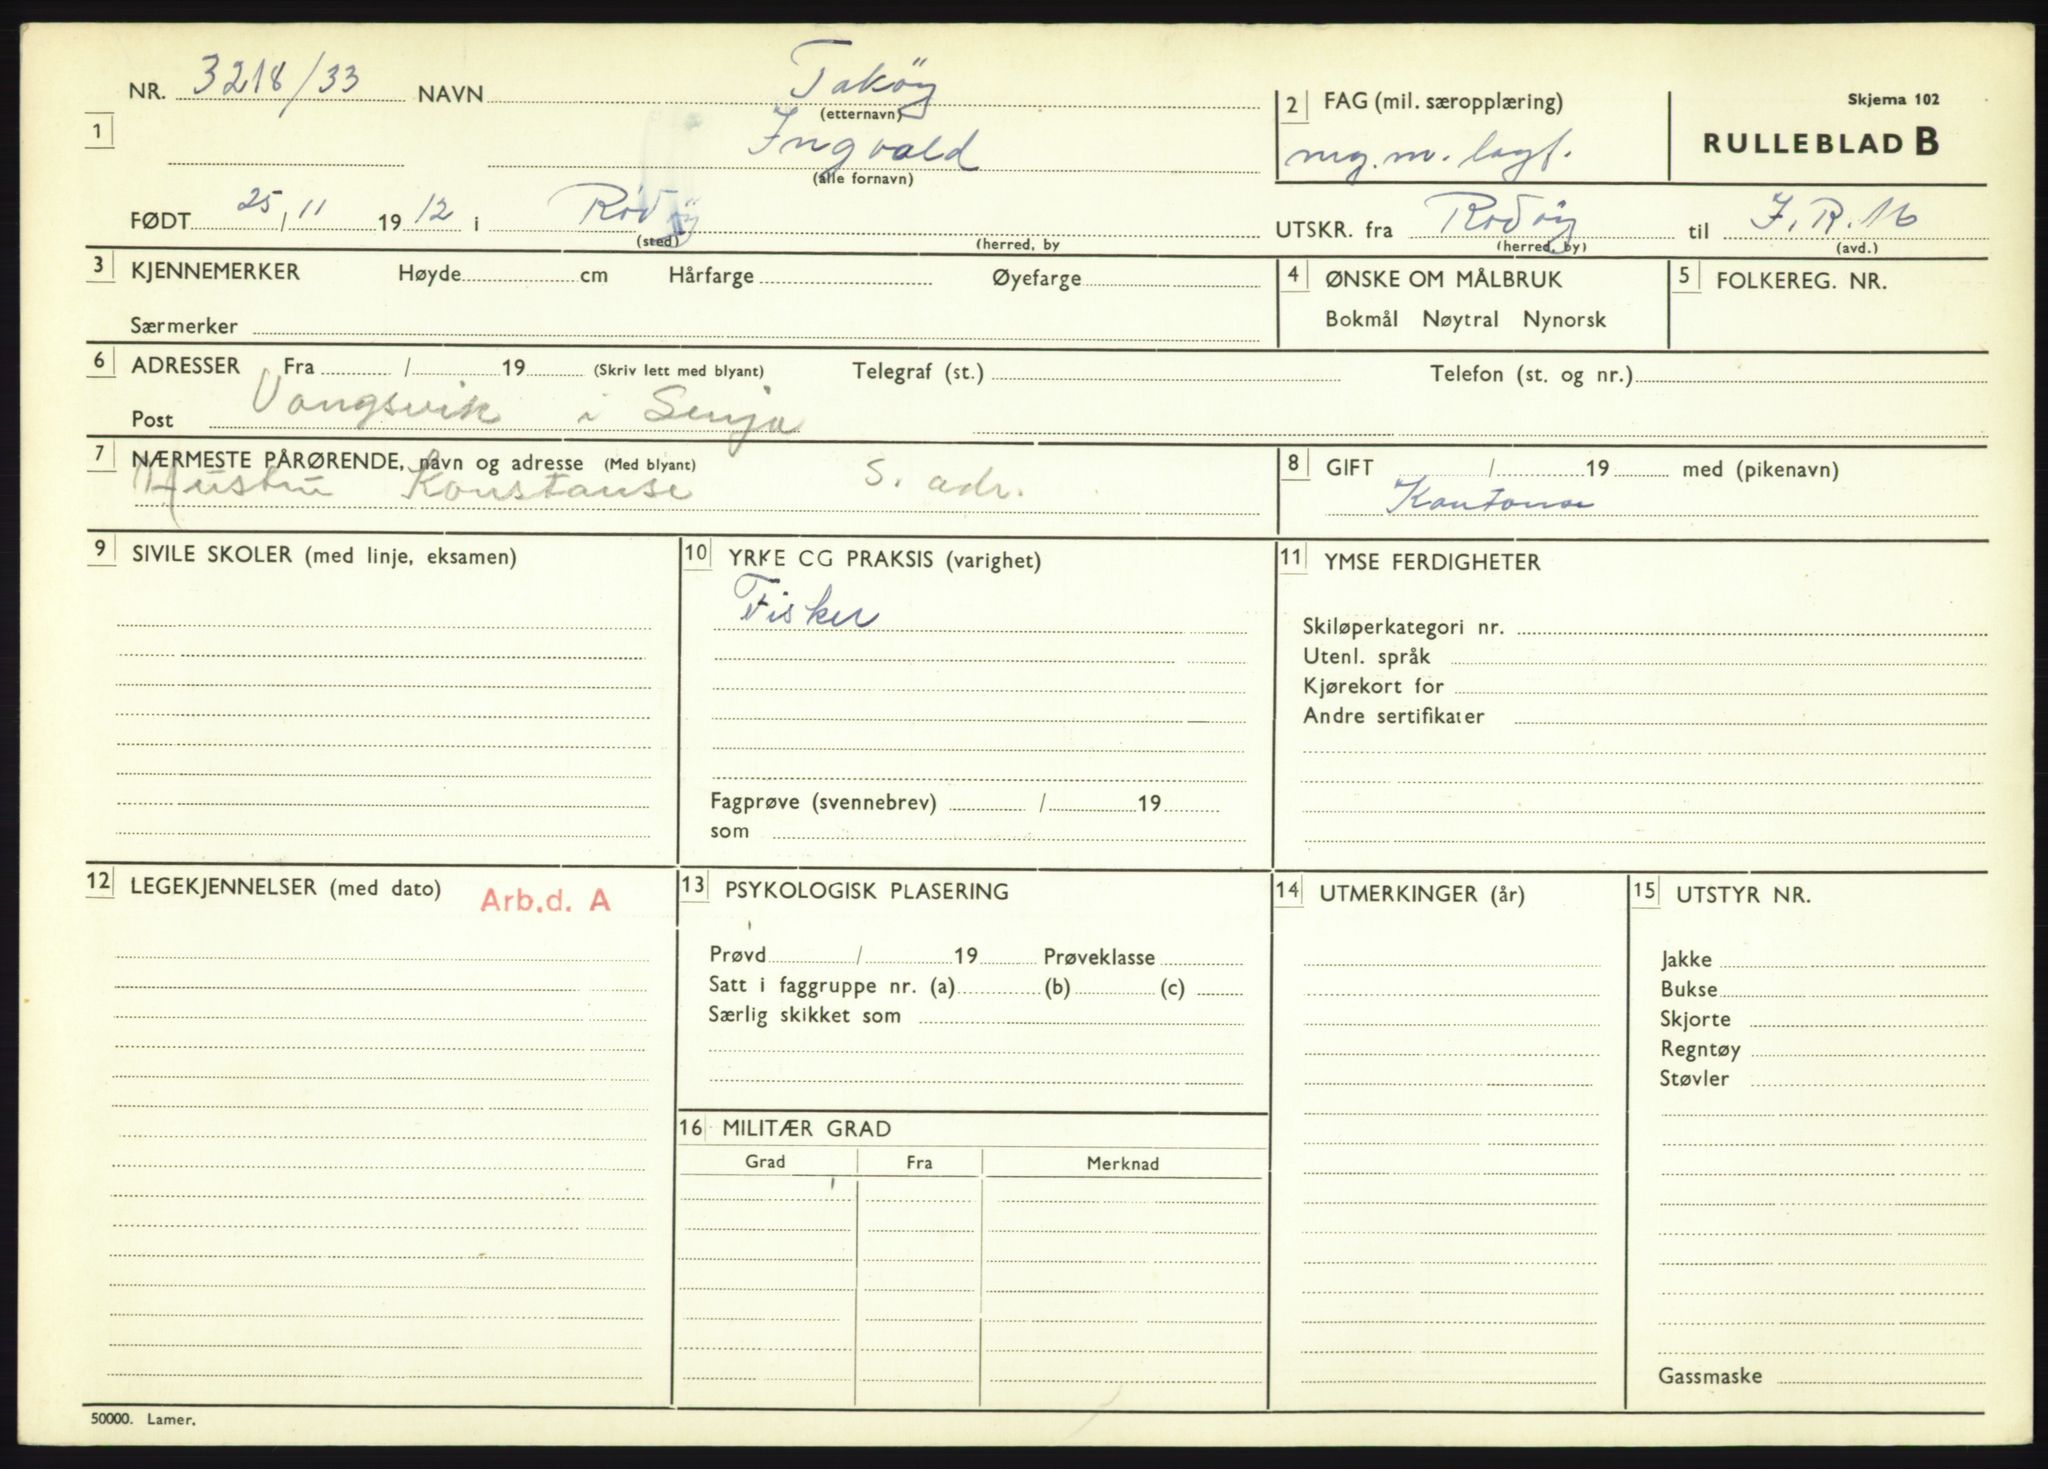 NR. 3218/33 NAVN Taköy
(etternavn)
1
Ingvald
(alle fornavn)
2 FAG (mil. særopplæring)
mg.m. lagf.
Skjema 102
RULLEBLAD B
FØDT 25/11 1912 i Rödöy
(sted) (herred, by
UTSKR. fra Rödöy til I.R.16
(herred, by) (avd.)
3 KJENNEMERKER Høyde cm Hårfarge Øyefarge
Særmerker
4 ØNSKE OM MÅLBRUK
Bokmål Nøytral Nynorsk
5 FOLKEREG. NR.
6 ADRESSER Fra / 19 (Skriv lett med blyant) Telegraf (st.) Telefon (st. og nr.)
Post Vangsvik i Senja
7 NÆRMESTE PÅRØRENDE, navn og adresse (Med blyant)
Hustru Konstanse s. adr.
8 GIFT / 19 med (pikenavn)
9 SIVILE SKOLER (med linje, eksamen)
10 YRKE CG PRAKSIS (varighet)
Fisker
Fagprøve (svennebrev) / 19
som
11 YMSE FERDIGHETER
Skiløperkategori nr.
Utenl. språk
Kjørekort for
Andre sertifikater
12 LEGEKJENNELSER (med dato) Arb.d. A
13 PSYKOLOGISK PLASERING
Prøvd / 19 Prøveklasse
Satt i faggruppe nr. (a) (b) (c)
Særlig skikket som
14 UTMERKINGER (år)
15 UTSTYR NR.
Jakke
Bukse
Skjorte
Regntøy
Støvler
Gassmaske
16 MILITÆR GRAD
Grad Fra Merknad
50000. Lamer.